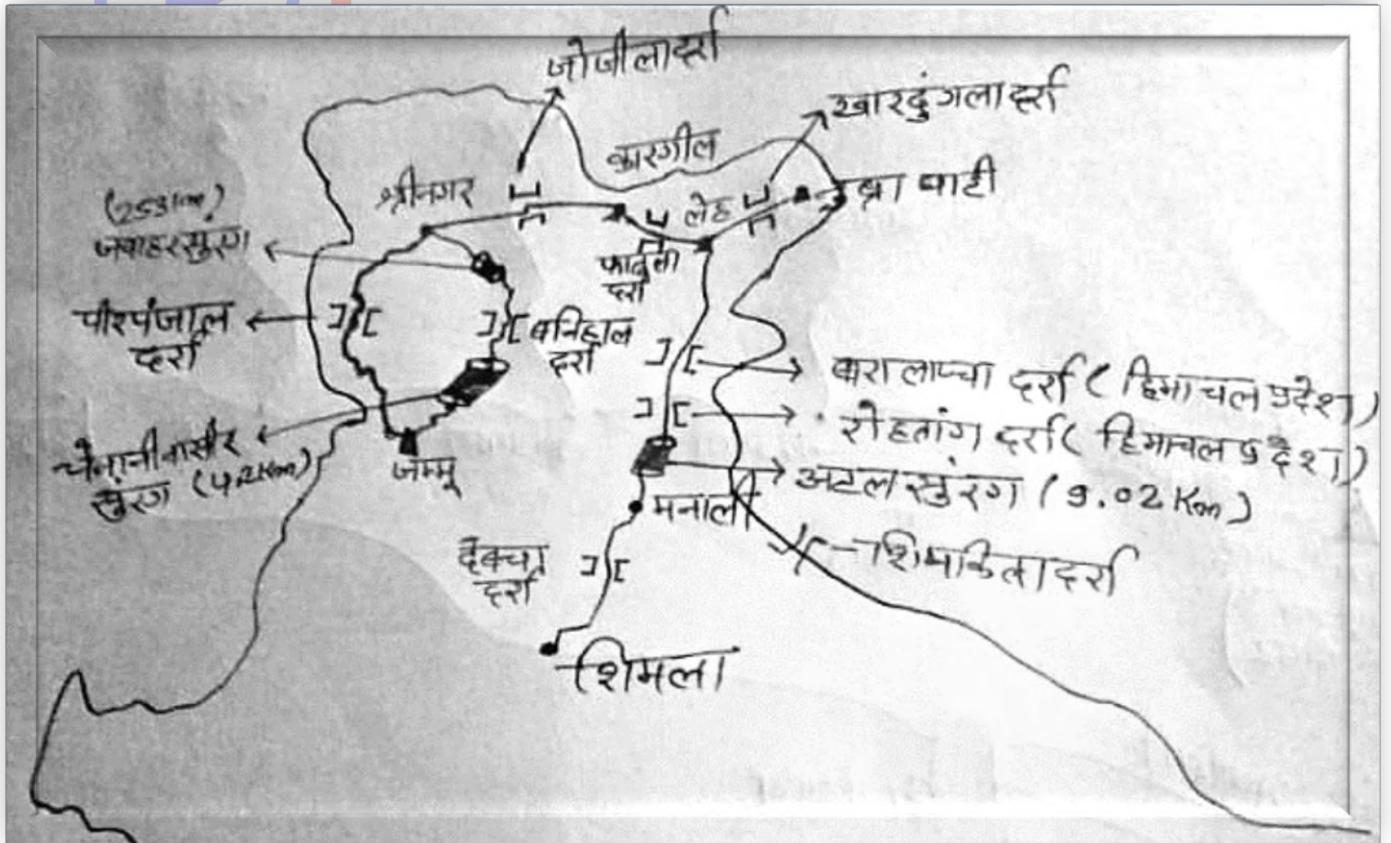 जोजीला दर्रा
खारदुंगला दर्रा
कारगील
श्रीनगर
लेह
नुब्रा घाटी
(253 km)
जवाहर सुरंग
फातुला
दर्रा
पीरपंजाल
दर्रा
बनिहाल
दर्रा
बारालाप्चा दर्रा ( हिमाचल प्रदेश )
रोहतांग दर्रा ( हिमाचल प्रदेश )
चेनानी नासीर
सुंरग
जम्मू
अटल सुंरग ( 9.02 Km )
मनाली
देबचा
दर्रा
शिपकिला दर्रा
शिमला